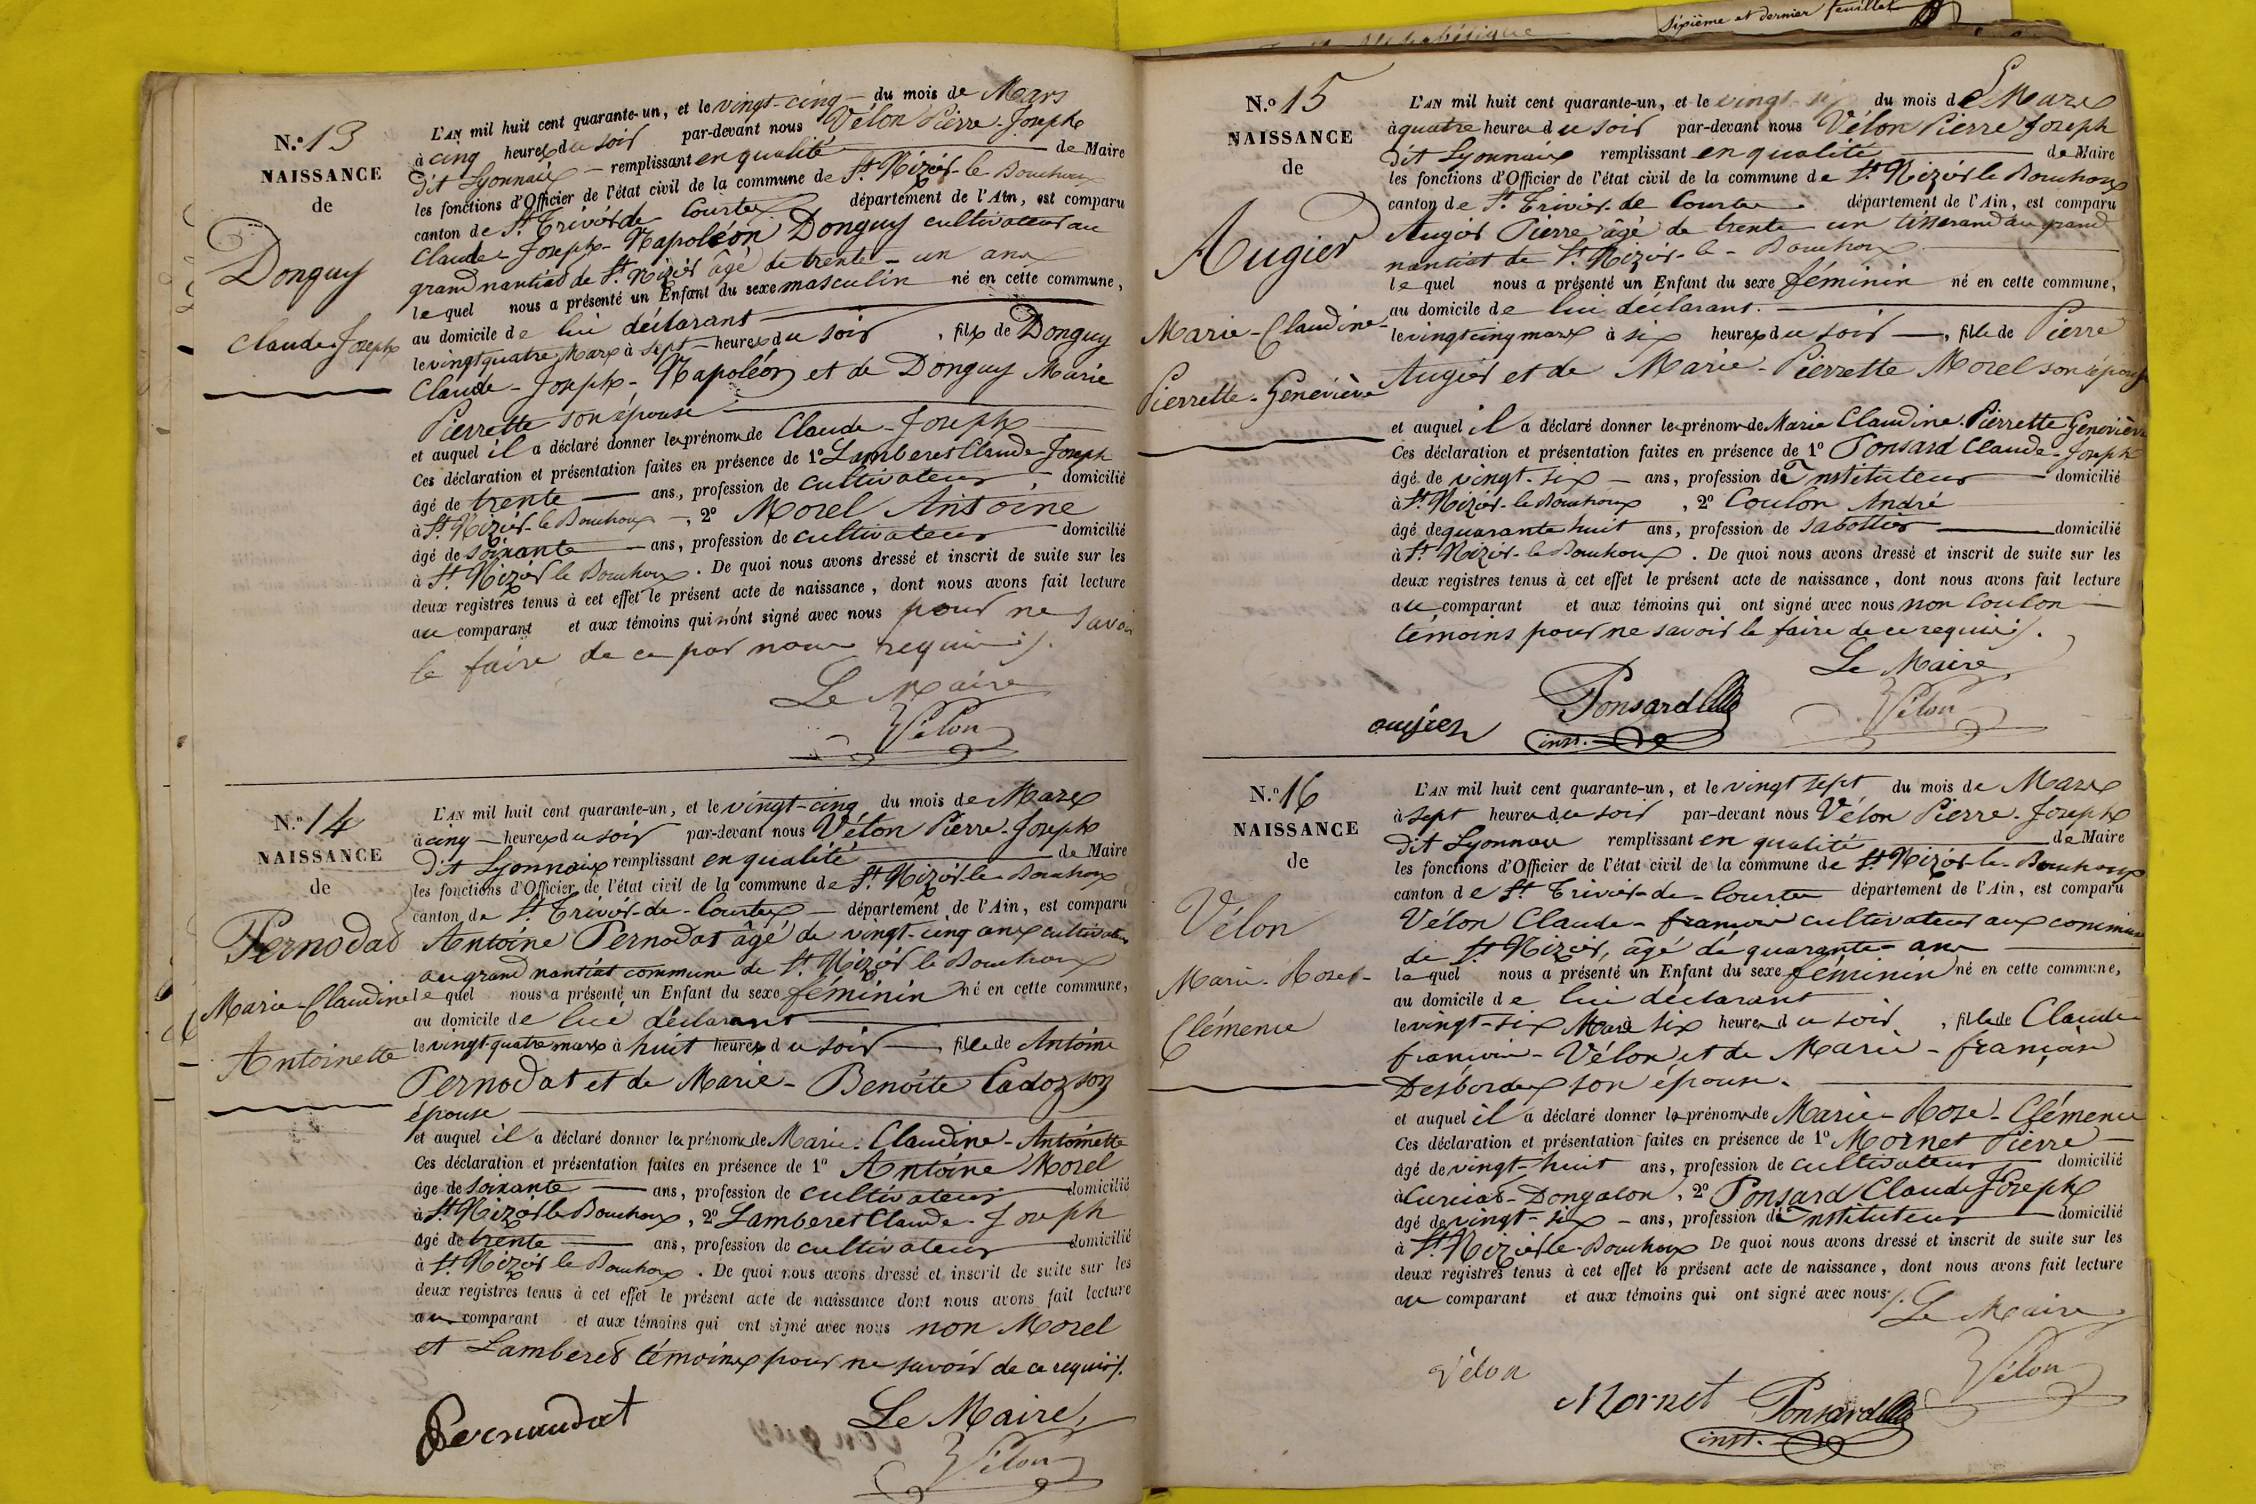 Sixième et dernier feuillet
N.o 13
NAISSANCE
de
Donguy
Claude Joseph
L'AN mil huit cent quarante-un, et le vingt-cinq du mois de Mars
à cinq heures du soir par-devant nous Vélon Pierre-Joseph
dit Lyonnais remplissant en qualité de Maire
les fonctions d'Officier de l'état civil de la commune de St. Nizier-le Bouchoux
canton de St. Trivier de Courtes département de l'Ain, est comparu
Claude-Joseph-Napoléon Donguy cultivateur au
grand nantiat de St. Nizier âgé de trente-un ans
lequel nous a présenté un Enfant du sexe masculin né en cette commune,
au domicile de lui déclarant
le vingt quatre Mars à sept heures du soir, fils de Donguy
Claude-Joseph-Napoléon et de Donguy Marie
Pierrette son épouse
et auquel il a déclaré donner les prénoms de Claude-Joseph
Ces déclaration et présentation faites en présence de 1o Lamberet Claude-Joseph
âgé de trente ans, profession de cultivateur, domicilié
à St. Nizier-le Bouchoux, 2o Morel Antoine
âgé de soixante ans, profession de cultivateur domicilié
à St. Nizier le Bouchoux. De quoi nous avons dressé et inscrit de suite sur les
deux registres tenus à cet effet le présent acte de naissance, dont nous avons fait lecture
au comparant et aux témoins qui n'ont signé avec nous pour ne savoir
le faire de ce par nous requis /.
Le Maire
Vélon
N.o 14
NAISSANCE
de
Pernodat
Marie-Claudine
Antoinette
L'AN mil huit cent quarante-un, et le vingt-cinq du mois de Mars
à cinq heures du soir par-devant nous Vélon Pierre-Joseph
dit Lyonnais remplissant en qualité de Maire
les fonctions d'Officier de l'état civil de la commune de St. Nizier-le Bouchoux
canton de St. Trivier-de-Courtes département de l'Ain, est comparu
Antoine Pernodat âgé de vingt-cinq ans cultivateur
au grand nantiat commune de St. Nizier le Bouchoux
lequel nous a présenté un Enfant du sexe féminin né en cette commune,
au domicile de lui déclarant
le vingt quatre mars à huit heures du soir, fille de Antoine
Pernodat et de Marie-Benoîte Cadoz son
épouse
et auquel il a déclaré donner les prénoms de Marie-Claudine-Antoinette
Ces déclaration et présentation faites en présence de 1o Antoine Morel
âgé de soixante ans, profession de cultivateur domicilié
à St. Nizier le Bouchoux, 2o Lamberet Claude-Joseph
âgé de trente ans, profession de cultivateur domicilié
à St. Nizier le Bouchoux. De quoi nous avons dressé et inscrit de suite sur les
deux registres tenus à cet effet le présent acte de naissance dont nous avons fait lecture
au comparant et aux témoins qui ont signé avec nous non Morel
et Lamberet témoins pour ne savoir de ce requis /.
Pernaudat
Le Maire
Vélon
N.o 15
NAISSANCE
de
Augier
Marie-Claudine-
Pierrette-Geneviève
L'AN mil huit cent quarante-un, et le vingt-six du mois de Mars
à quatre heures du soir par-devant nous Vélon Pierre Joseph
dit Lyonnais remplissant en qualité de Maire
les fonctions d'Officier de l'état civil de la commune de St. Nizier le Bouchoux
canton de St. Trivier-de Courtes département de l'Ain, est comparu
Augier Pierre âgé de trente-un tisserand au grand
nantiat de St. Nizier-le-Bouchoux
lequel nous a présenté un Enfant du sexe féminin né en cette commune,
au domicile de lui déclarant.
le vingt cinq mars à six heures du soir, fille de Pierre
Augier et de Marie-Pierrette Morel son épouse
et auquel il a déclaré donner les prénoms de Marie Claudine Pierrette Geneviève
Ces déclaration et présentation faites en présence de 1o Ponsard Claude-Joseph
âgé de vingt-six ans, profession d'Instituteur domicilié
à St. Nizier-le Bouchoux, 2o Coulon André
âgé de quarante huit ans, profession de sabottier domicilié
à St. Nizier-le Bouchoux. De quoi nous avons dressé et inscrit de suite sur les
deux registres tenus à cet effet le présent acte de naissance, dont nous avons fait lecture
au comparant et aux témoins qui ont signé avec nous non Coulon
témoins pour ne savoir le faire de ce requis /.
Le Maire
augier Ponsard Vélon
inst.
N.o 16
NAISSANCE
de
Vélon
Marie-Rose-
Clémence
L'AN mil huit cent quarante-un, et le vingt sept du mois de Mars
à sept heures du soir par-devant nous Vélon Pierre-Joseph
dit Lyonnais remplissant en qualité de Maire
les fonctions d'Officier de l'état civil de la commune de St. Nizier-le-Bouchoux
canton de St. Trivier-de-Courtes département de l'Ain, est comparu
Vélon Claude-françois cultivateur aux communes
de St. Nizier, âgé de quarante ans
lequel nous a présenté un Enfant du sexe féminin né en cette commune,
au domicile de lui déclarant
le vingt-six Mars à six heures du soir, fille de Claude
françois-Vélon et de Marie-françoise
Desbordes son épouse.
et auquel il a déclaré donner les prénoms de Marie-Rose-Clémence
Ces déclaration et présentation faites en présence de 1o Mornet Pierre
âgé de vingt-huit ans, profession de cultivateur domicilié
à Curciat-Dongalon, 2o Ponsard Claude Joseph
âgé de vingt-six ans, profession d'Instituteur domicilié
à St. Nizier le-Bouchoux De quoi nous avons dressé et inscrit de suite sur les
deux registres tenus à cet effet le présent acte de naissance, dont nous avons fait lecture
au comparant et aux témoins qui ont signé avec nous /.
Le Maire
Vélon Mornet Ponsard Vélon
inst.